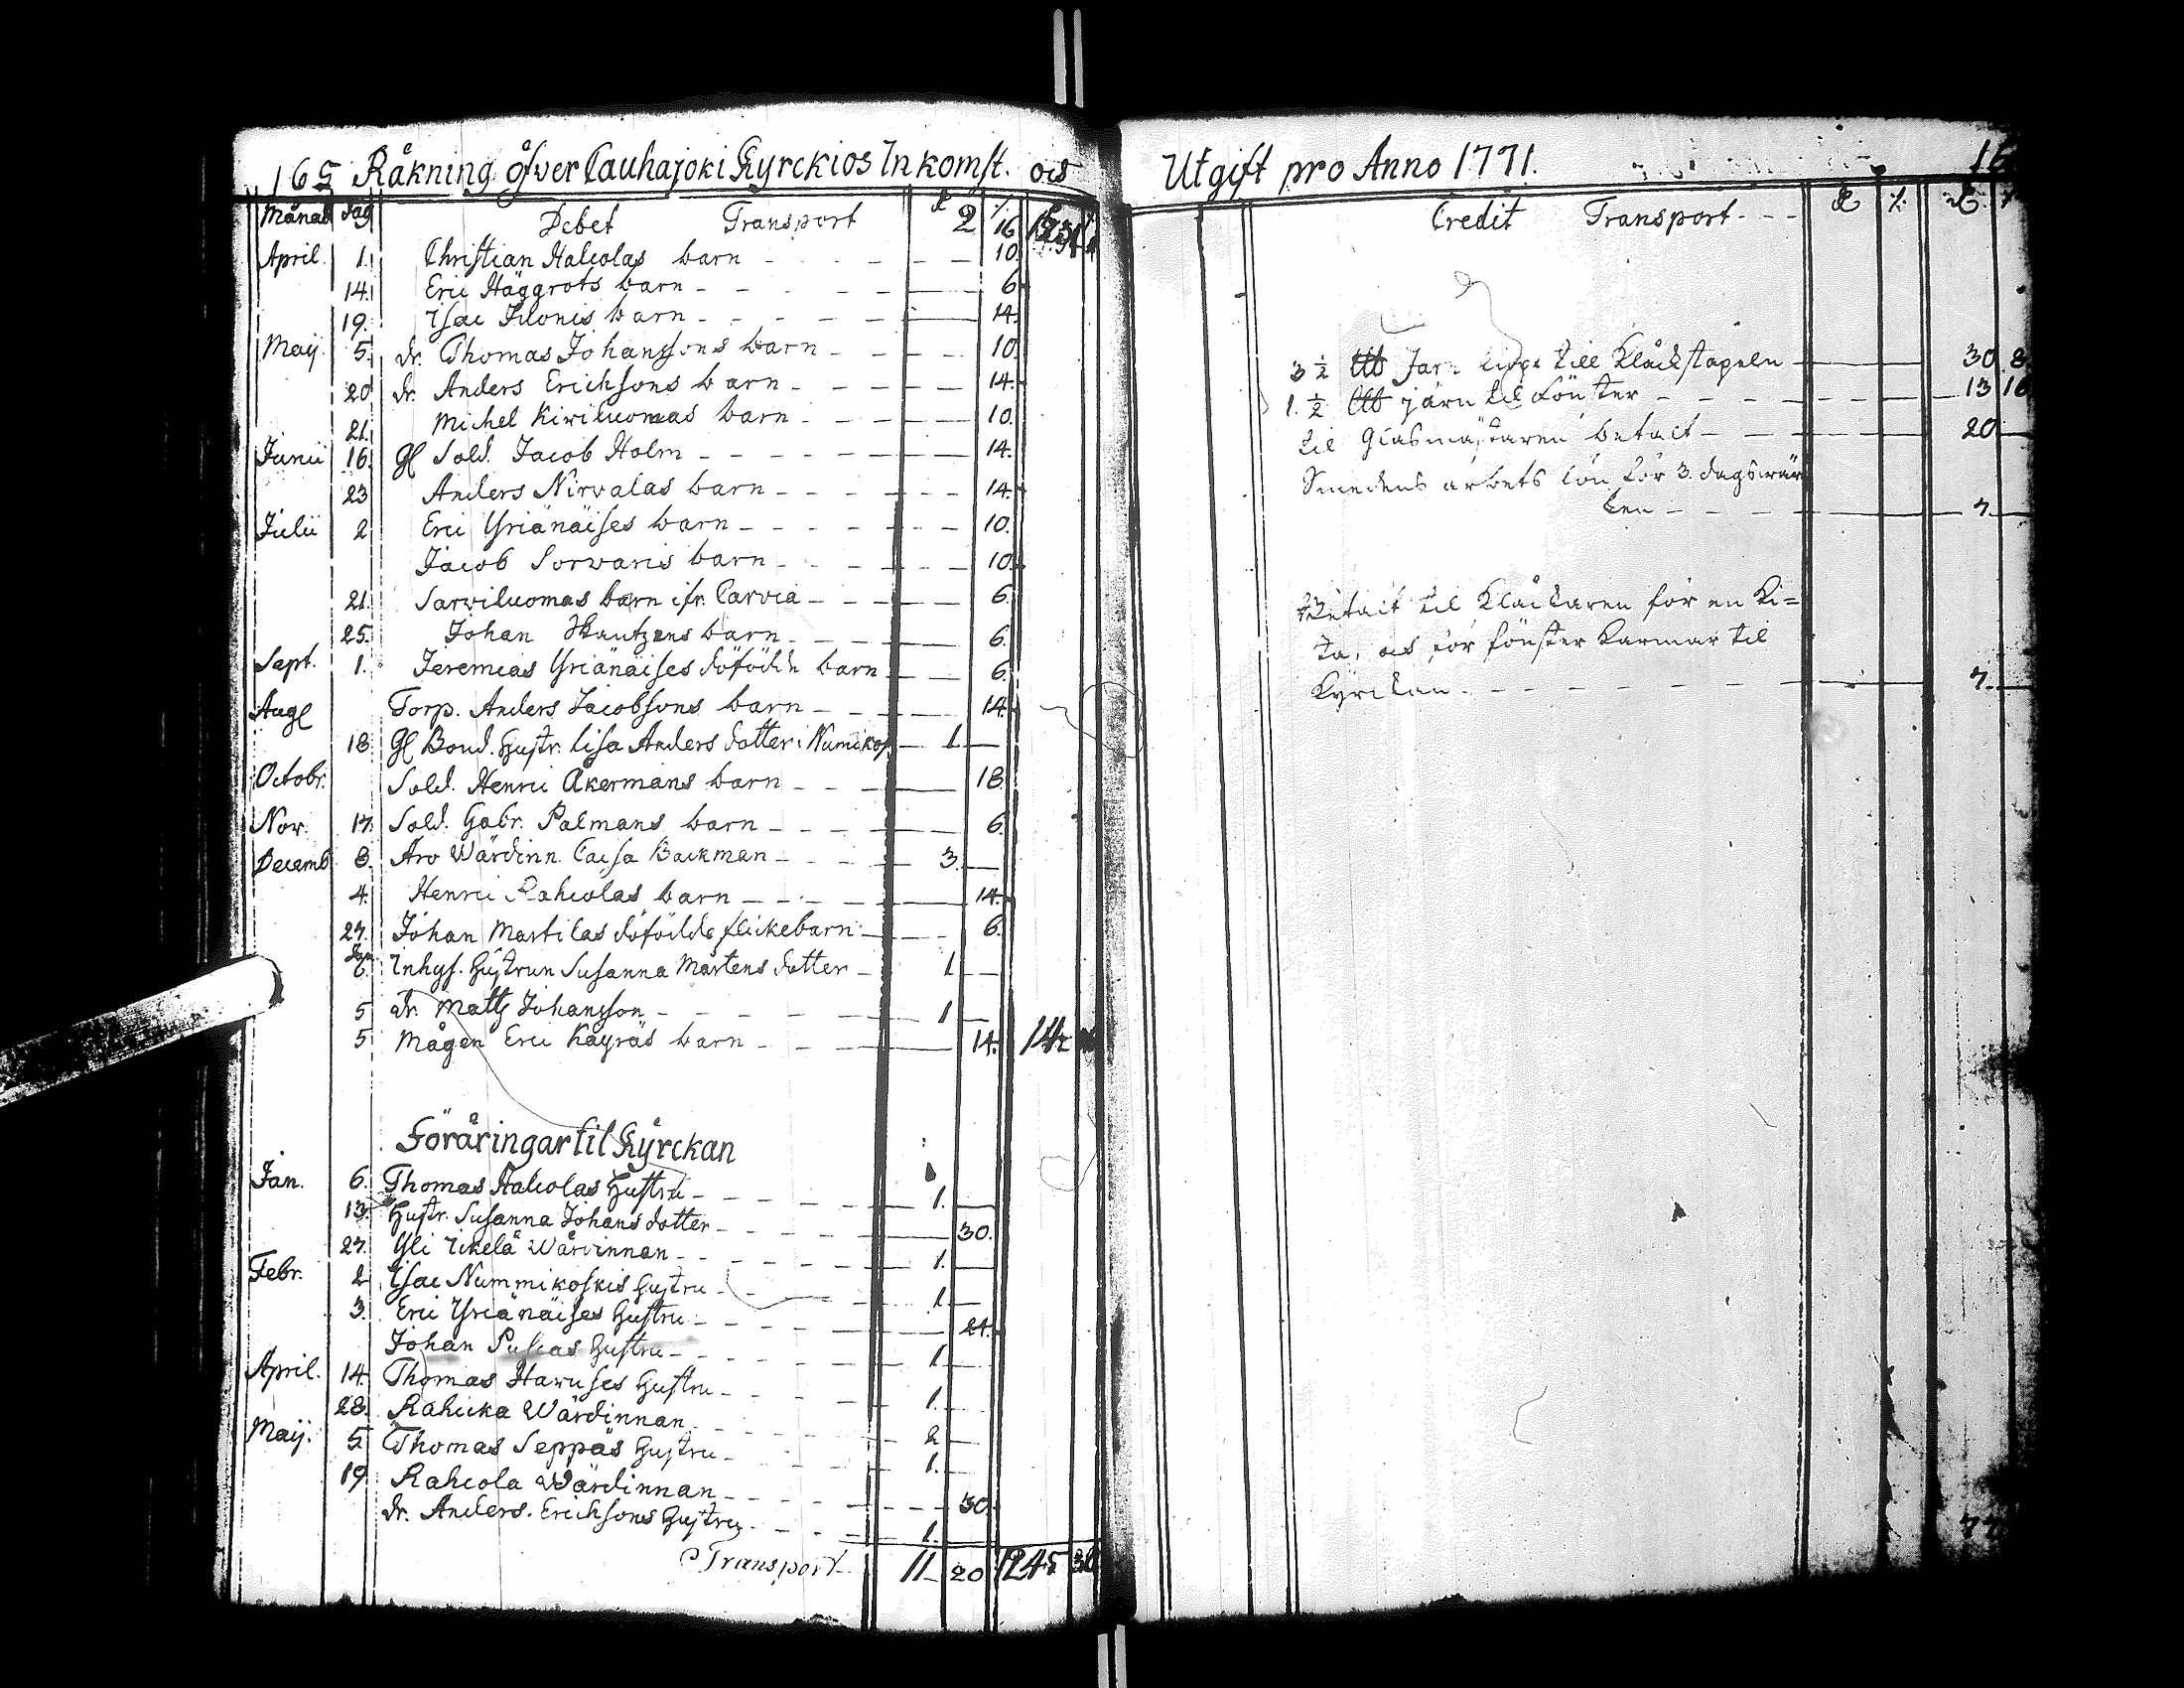 165 Råkning öfver Cauhajoki Kyrckios Inkomst. och
Månad dag Debet Transport 2 16
April. 1. Christian Halcolas barn - - - - 10.
14. Eric Häggrots barn - - - - 6.
19. Isac Ilvonis barn - - - - 14.
Maij. 5. dr. Thomas Johanssons barn - - - 10.
20 dr. Anders Erichsons barn - - - - 14.
21. Michel Kiviluomas barn - - - - 10.
Junii 16. Gl Sold. Jacob Holm - - - - 14.
23 Anders Nirvalas barn - - - - 14.
Julii 2 Eric Yriänäises barn - - - - 10.
Jacob Sorvaris barn - - - - 10.
21. Sarviluomas barn ifr. Carvia - - - 6.
25. Johan barn - - - 6.
Sept. 1. Jeremias Yriänäises döfödde barn 6.
Aug Torp. Anders Jacobsons barn - - - 14.
18. Gl Bond. Hustr. Lisa Anders dotter i Numikos. 1.
Octobr. Sold. Henric Åkermans barn - - - 18.
Nov. 17. Sold. Gabr. Palmans barn - - - 6.
Decemb 8. Aro Wärdinn. Caisa Backman - - - 3.
4. Henric Rahcolas barn - - - 14.
27. Johan Martilas döfödde flickebarn - - - 6.
Jan. 6. Inhys. Hustrun Susanna Mårtens dotter - 1
5 dr. Matts Johansson - - - - 1
5 Mågen Eric Käyräs barn - - - 14. 14
Föräringar til Kyrckan
Jan. 6. Thomas Halcolas Hustru - - - 1.
13. Hustr. Susanna Johans dotter - - - 30.
27. Yli Ickelä Wärdinnan - - - 1.
Febr. 2 Isac Nummikoskis Hustru - - - 1
3. Eric Yriänäises Hustru - - - 24.
Johan Hustru - - - 1.
April. 14. Thomas Haruses Hustru - - - 1.
28. Rahicka Wärdinnan - - - 2
Maij. 5 Thomas Seppäs Hustru - - - 1.
19. Rahcola Wärdinnan - - - 30.
dr. Anders Erichsons Hustru - - - 1.
Transport 11 20 1245
Utgift pro Anno 1771.
Credit Transport - - -
3 ½ Jarn till Klåckstapeln 30 8
1. ½ järn til fönster - - - - 13 16
til Glasmästaren betalt - - - 20
Smedens arbets lön för 3. dagswär
ken - - - - 7.
Betalt til Klåckaren för en Ki=
sta, och för fönster karmar til
Kyrckan - - - - 7.